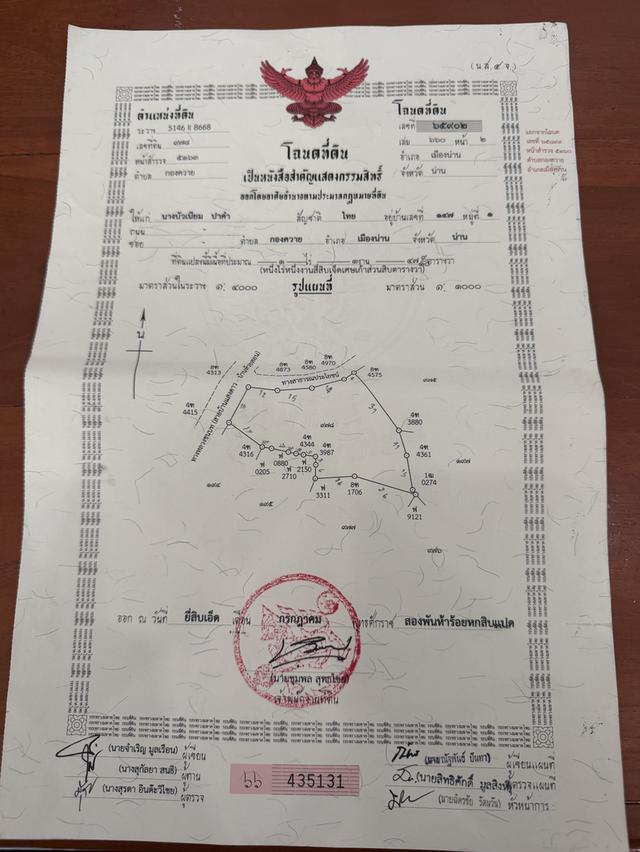 (น.ส.๔ จ.)
ตำแหน่งที่ดิน
ระวาง 5146 II 8668
เลขที่ดิน ๙๗๘
หน้าสำรวจ ๕๒๖๓
ตำบล กองควาย
โฉนดที่ดิน
เลขที่ ๖๕๙๐๒
เล่ม ๖๖๐ หน้า ๒
อำเภอ เมืองน่าน
จังหวัด น่าน
แยกจากโฉนด
ตำบลกองควาย
อำเภอเมืองน่าน
โฉนดที่ดิน
เป็นหนังสือสำคัญแสดงกรรมสิทธิ์
ออกโดยอาศัยอำนาจตามประมวลกฎหมายที่ดิน
ให้แก่ นางบัวเนียม ปาคำ สัญชาติ ไทย อยู่บ้านเลขที่ ๑๔๗ หมู่ที่ ๑
ถนน -
ซอย - ตำบล กองควาย อำเภอ เมืองน่าน จังหวัด น่าน
ที่ดินแปลงนี้มีเนื้อที่ประมาณ ๑ ไร่ ๑ งาน ตารางวา
(หนึ่งไร่หนึ่งงานสี่สิบเจ็ดเศษเก้าส่วนสิบตารางวา)
มาตราส่วนในระวาง ๑: ๔๐๐๐ รูปแผนที่ มาตราส่วน ๑: ๑๐๐๐
น
8ฑ 4313
8ฑ 4873
8ฑ 4580
8ฑ 4970
8ฑ 4575
ทางสาธารณประโยชน์
๙๗๕
4ฑ 4415
๙๗๘
4ฑ 3880
4ฑ 4316
4ฑ 4344
4ฑ 3987
4ฑ 4361
ฟ 0205
ฟ 0880
ฟ 2710
ฟ 2150
ฟ 3311
8ฑ 1706
1ฒ 0274
ฟ 9121
๑๙๗
๑๙๔
๑๙๕
๙๗๗
๙๗๖
ออก ณ วันที่ ยี่สิบเอ็ด เดือน กรกฎาคม พุทธศักราช สองพันห้าร้อยหกสิบแปด
(นายชุมพล สุทธิไชย)
เจ้าพนักงานที่ดิน
(นายจำเริญ มูลเรือน) ผู้เขียน
(นางสุกัลยา สนธิ) ผู้ทาน
(นางสุรดา อินต๊ะวิไชย) ผู้ตรวจ
๖๖ 435131
ผู้เขียนแผนที่
(นายสิทธิศักดิ์ มูลสิงห์) ผู้ตรวจแผนที่
(นายฉัตรชัย รัตนวัน) หัวหน้าการ